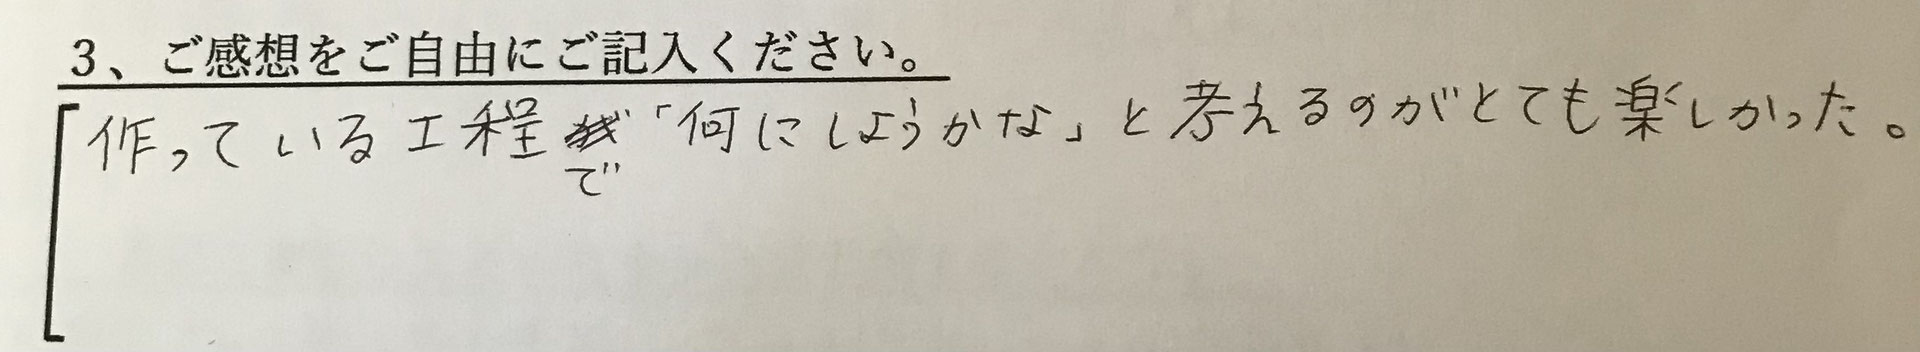 3、ご感想をご自由にご記入ください。
作っている工程で「何にしようかな」と考えるのがとても楽しかった。